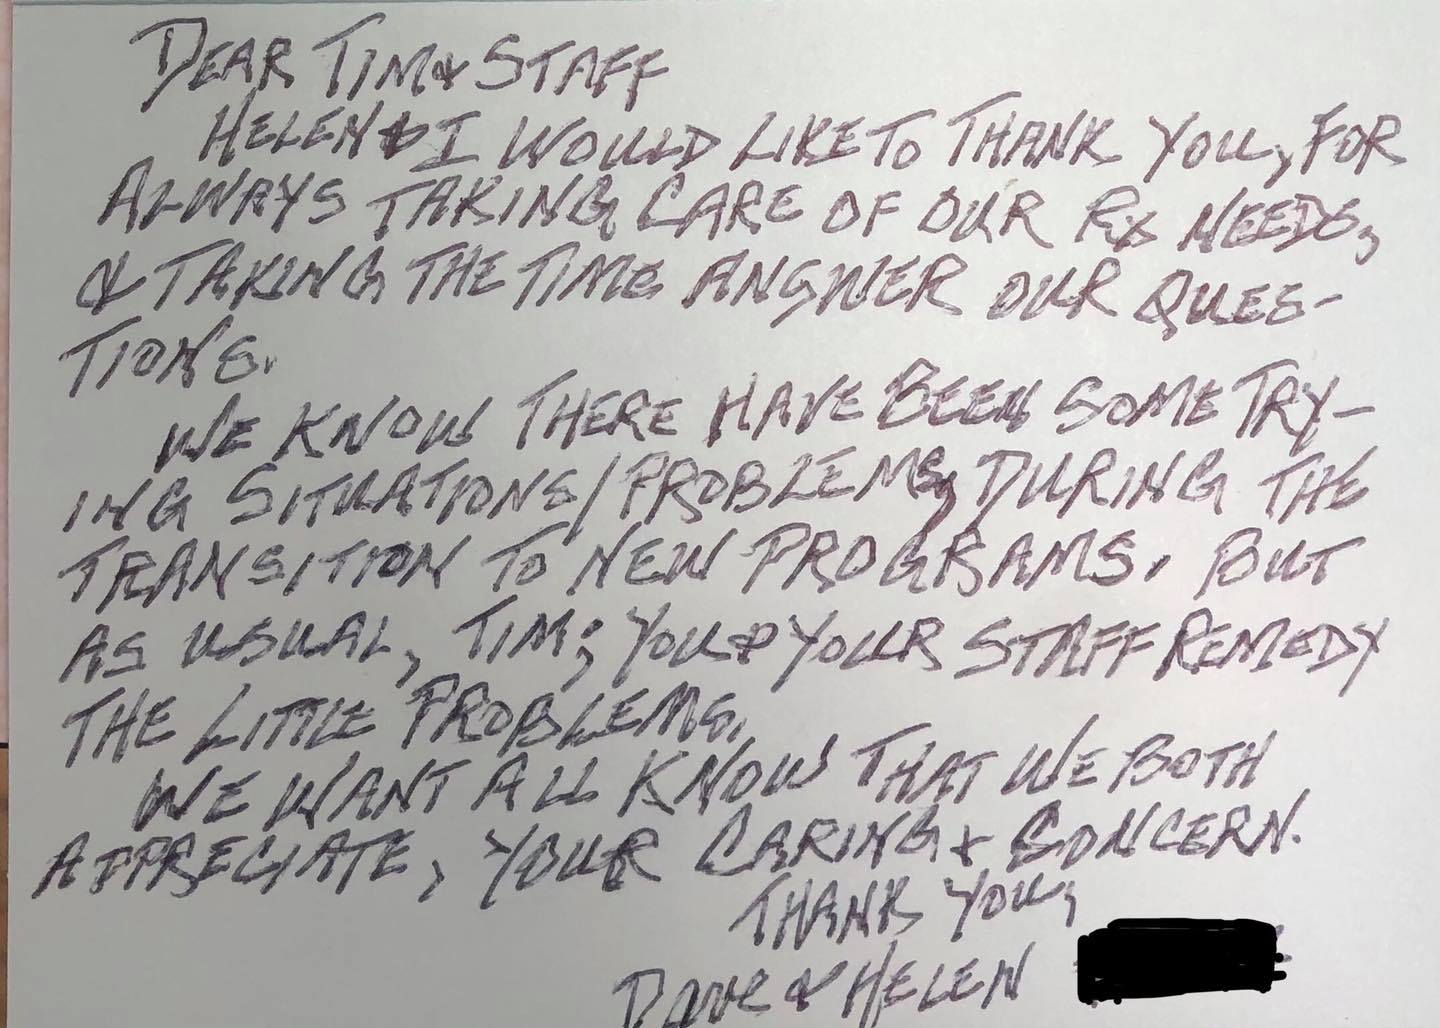 DEAR TIM & STAFF
HELEN & I WOULD LIKE TO THANK YOU, FOR
ALWAYS TAKING CARE OF OUR Rx NEEDS,
& TAKING THE TIME ANSWER OUR QUES-
TIONS.
WE KNOW THERE HAVE BEEN SOME TRY-
ING SITUATIONS/PROBLEMS, DURING THE
TRANSITION TO NEW PROGRAMS. BUT
AS USUAL, TIM; YOU & YOUR STAFF REMEDY
THE LITTLE PROBLEMS.
WE WANT ALL KNOW THAT WE BOTH
APPRECIATE, YOUR CARING & CONCERN.
THANK YOU,
DAVE & HELEN